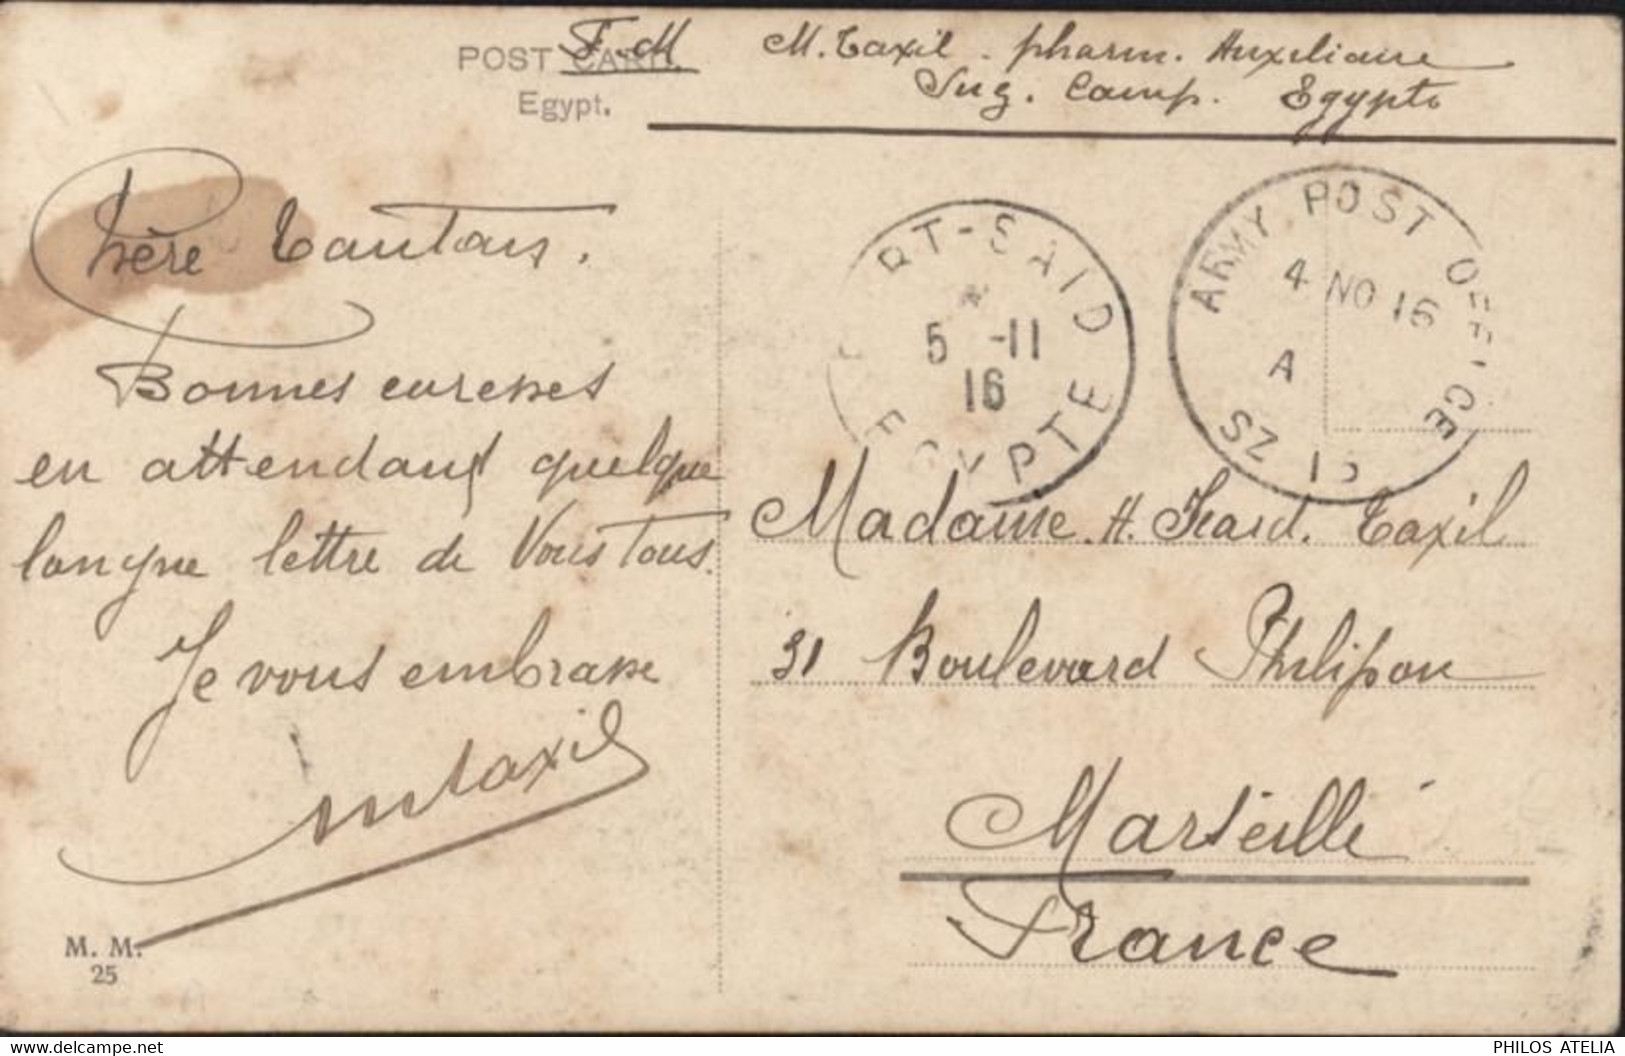 F.M
POST CARD.
Egypt.
M. Taxil - pharm. Auxiliaire
Camp. Egypte
Chère Tantais.
Bonnes caresses
en attendant quelque
longue lettre de Vous Tous.
Je vous embrasse
MTaxil
M. M.
25
PORT-SAID
5 -11
16
EGYPTE
ARMY POST OFFICE
4 NO 16
A
SZ 10
Madame. H. Icard. Taxil
31 Boulevard Philipon
Marseille
France
www.delcampe.net
PHILOS ATELIA